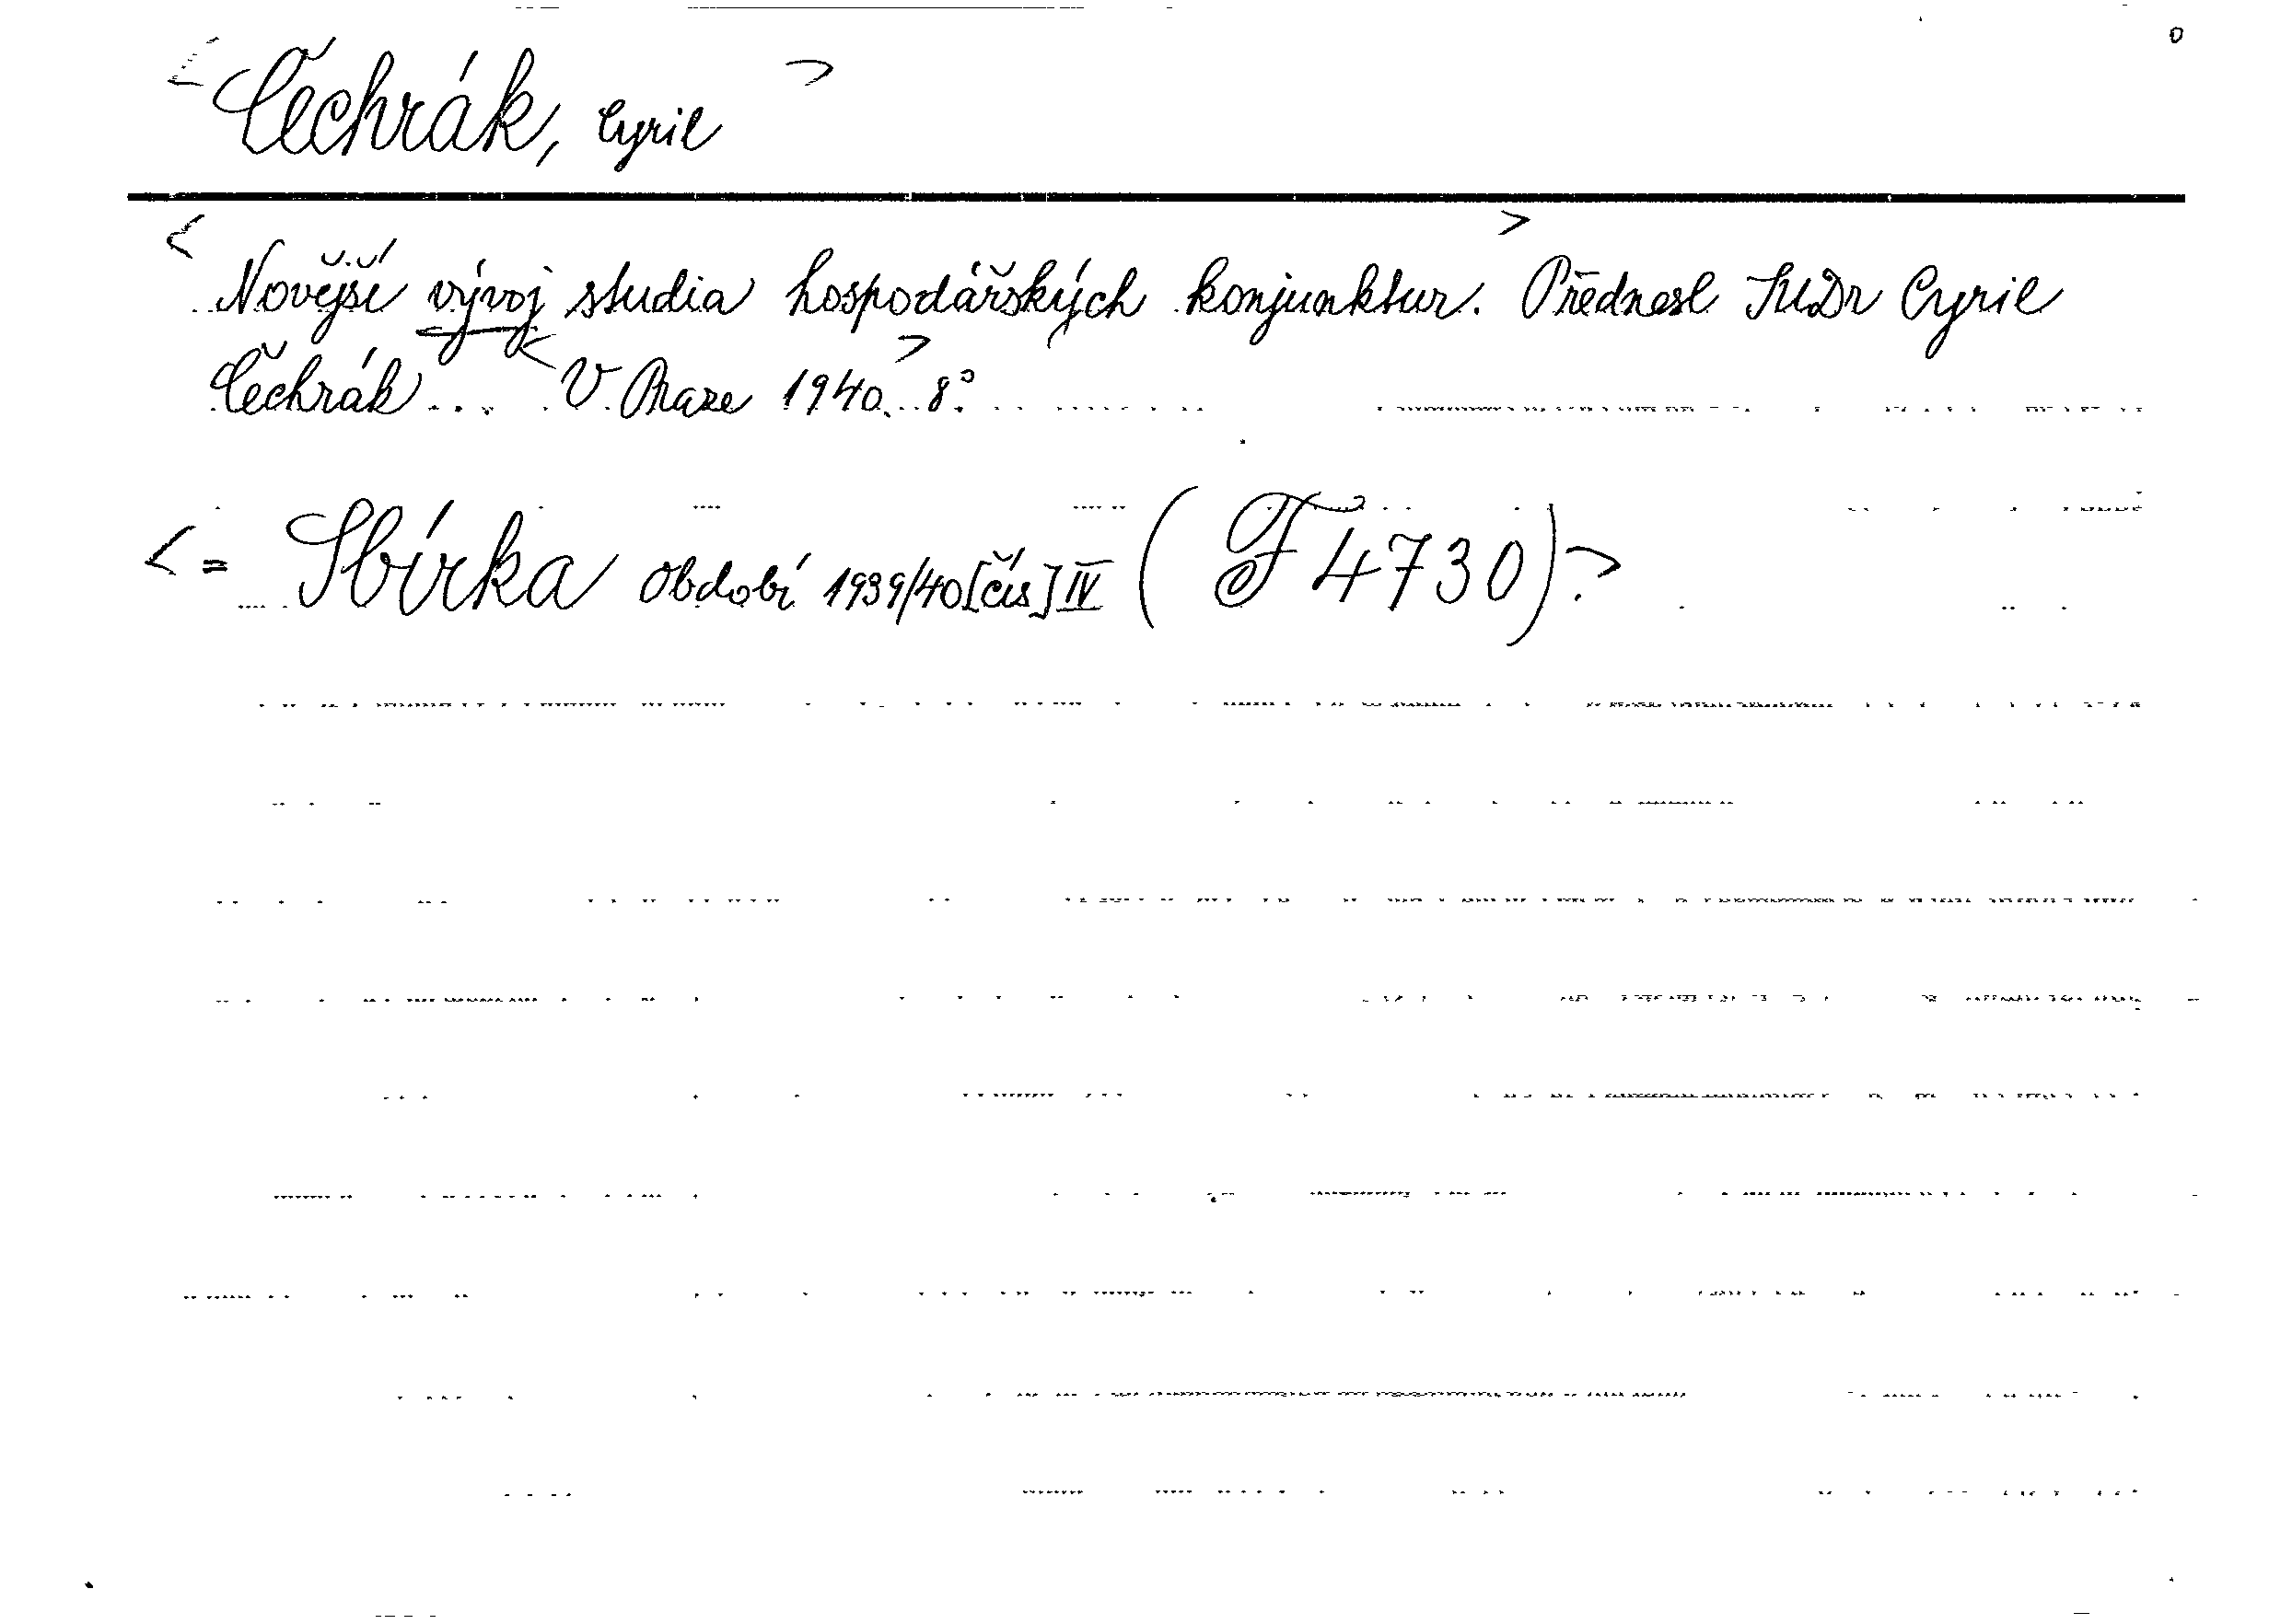 < Čechrák, Cyril >
< Novější vývoj studia hospodářských konjunktur. > Přednesl JUDr Cyril
Čechrák ... < V Praze 1940. > 8°.
< = Sbírka období 1939/40 [čís] IV ( F 4730). >